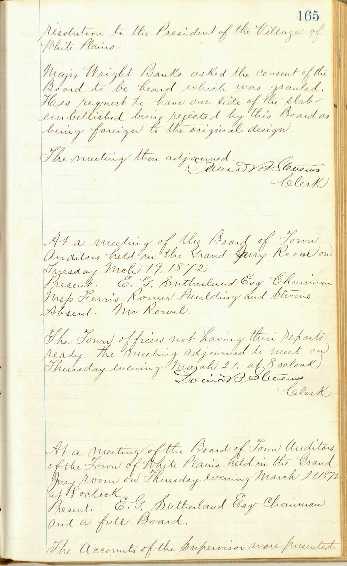 165
resolution to the President of the Village of
White Plains.
Major Wright Banks asked the consent of the
Board to be heard which was granted.
His request to have one side of the slab
embellished being rejected by this Board as
being foreign to the original design
The meeting then adjourned
Stevens
Clerk
At a meeting of the Board of Town
Auditors held in the Grand Jury Room on
Tuesday Mch 19 1872
Present. E. G. Sutherland Esq Chairman
Mess Ferris Romer and Stevens
Absent. Mr
The Town officers not having their reports
ready the meeting adjourned to meet on
Thursday evening March 21, at 8 oclock
Stevens
Clerk
At a meeting of the Board of Town Auditors
of the Town of White Plains held in the Grand
Jury Room on Thursday evening March 21 1872
at 8 oclock
Present. E. G. Sutherland Esq Chairman
and a full Board.
The Accounts of the Supervisor were presented